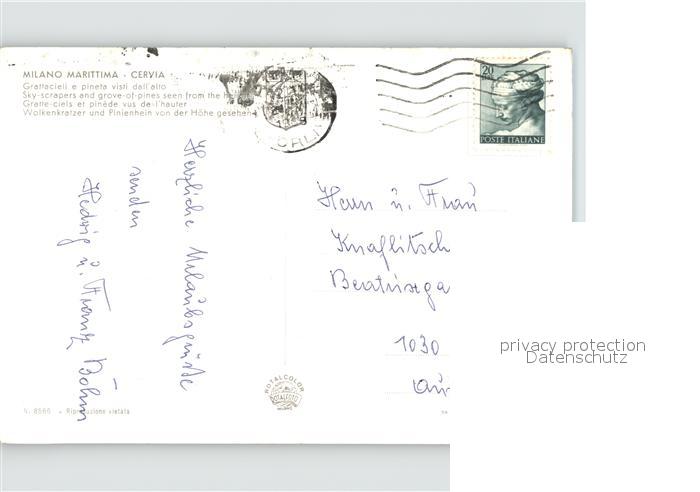 MILANO MARITTIMA - CERVIA
Grattacieli e pineta visti dall'alto
Sky-scrapers and grove-of-pines seen from the
Gratte-ciels et pinède vus de l'hauter
Wolkenkratzer und Pinienhein von der Höhe gesehen
20
POSTE ITALIANE
Herzliche Urlaubsgrüße
senden
Hedwig u. Franz Böhm
Herrn u. Frau
Knaflitsch
Beatrixga
1030
privacy protection
Datenschutz
ROTALCOLOR
ROTALFOTO
MILANO
N. 8566 - Riproduzione vietata